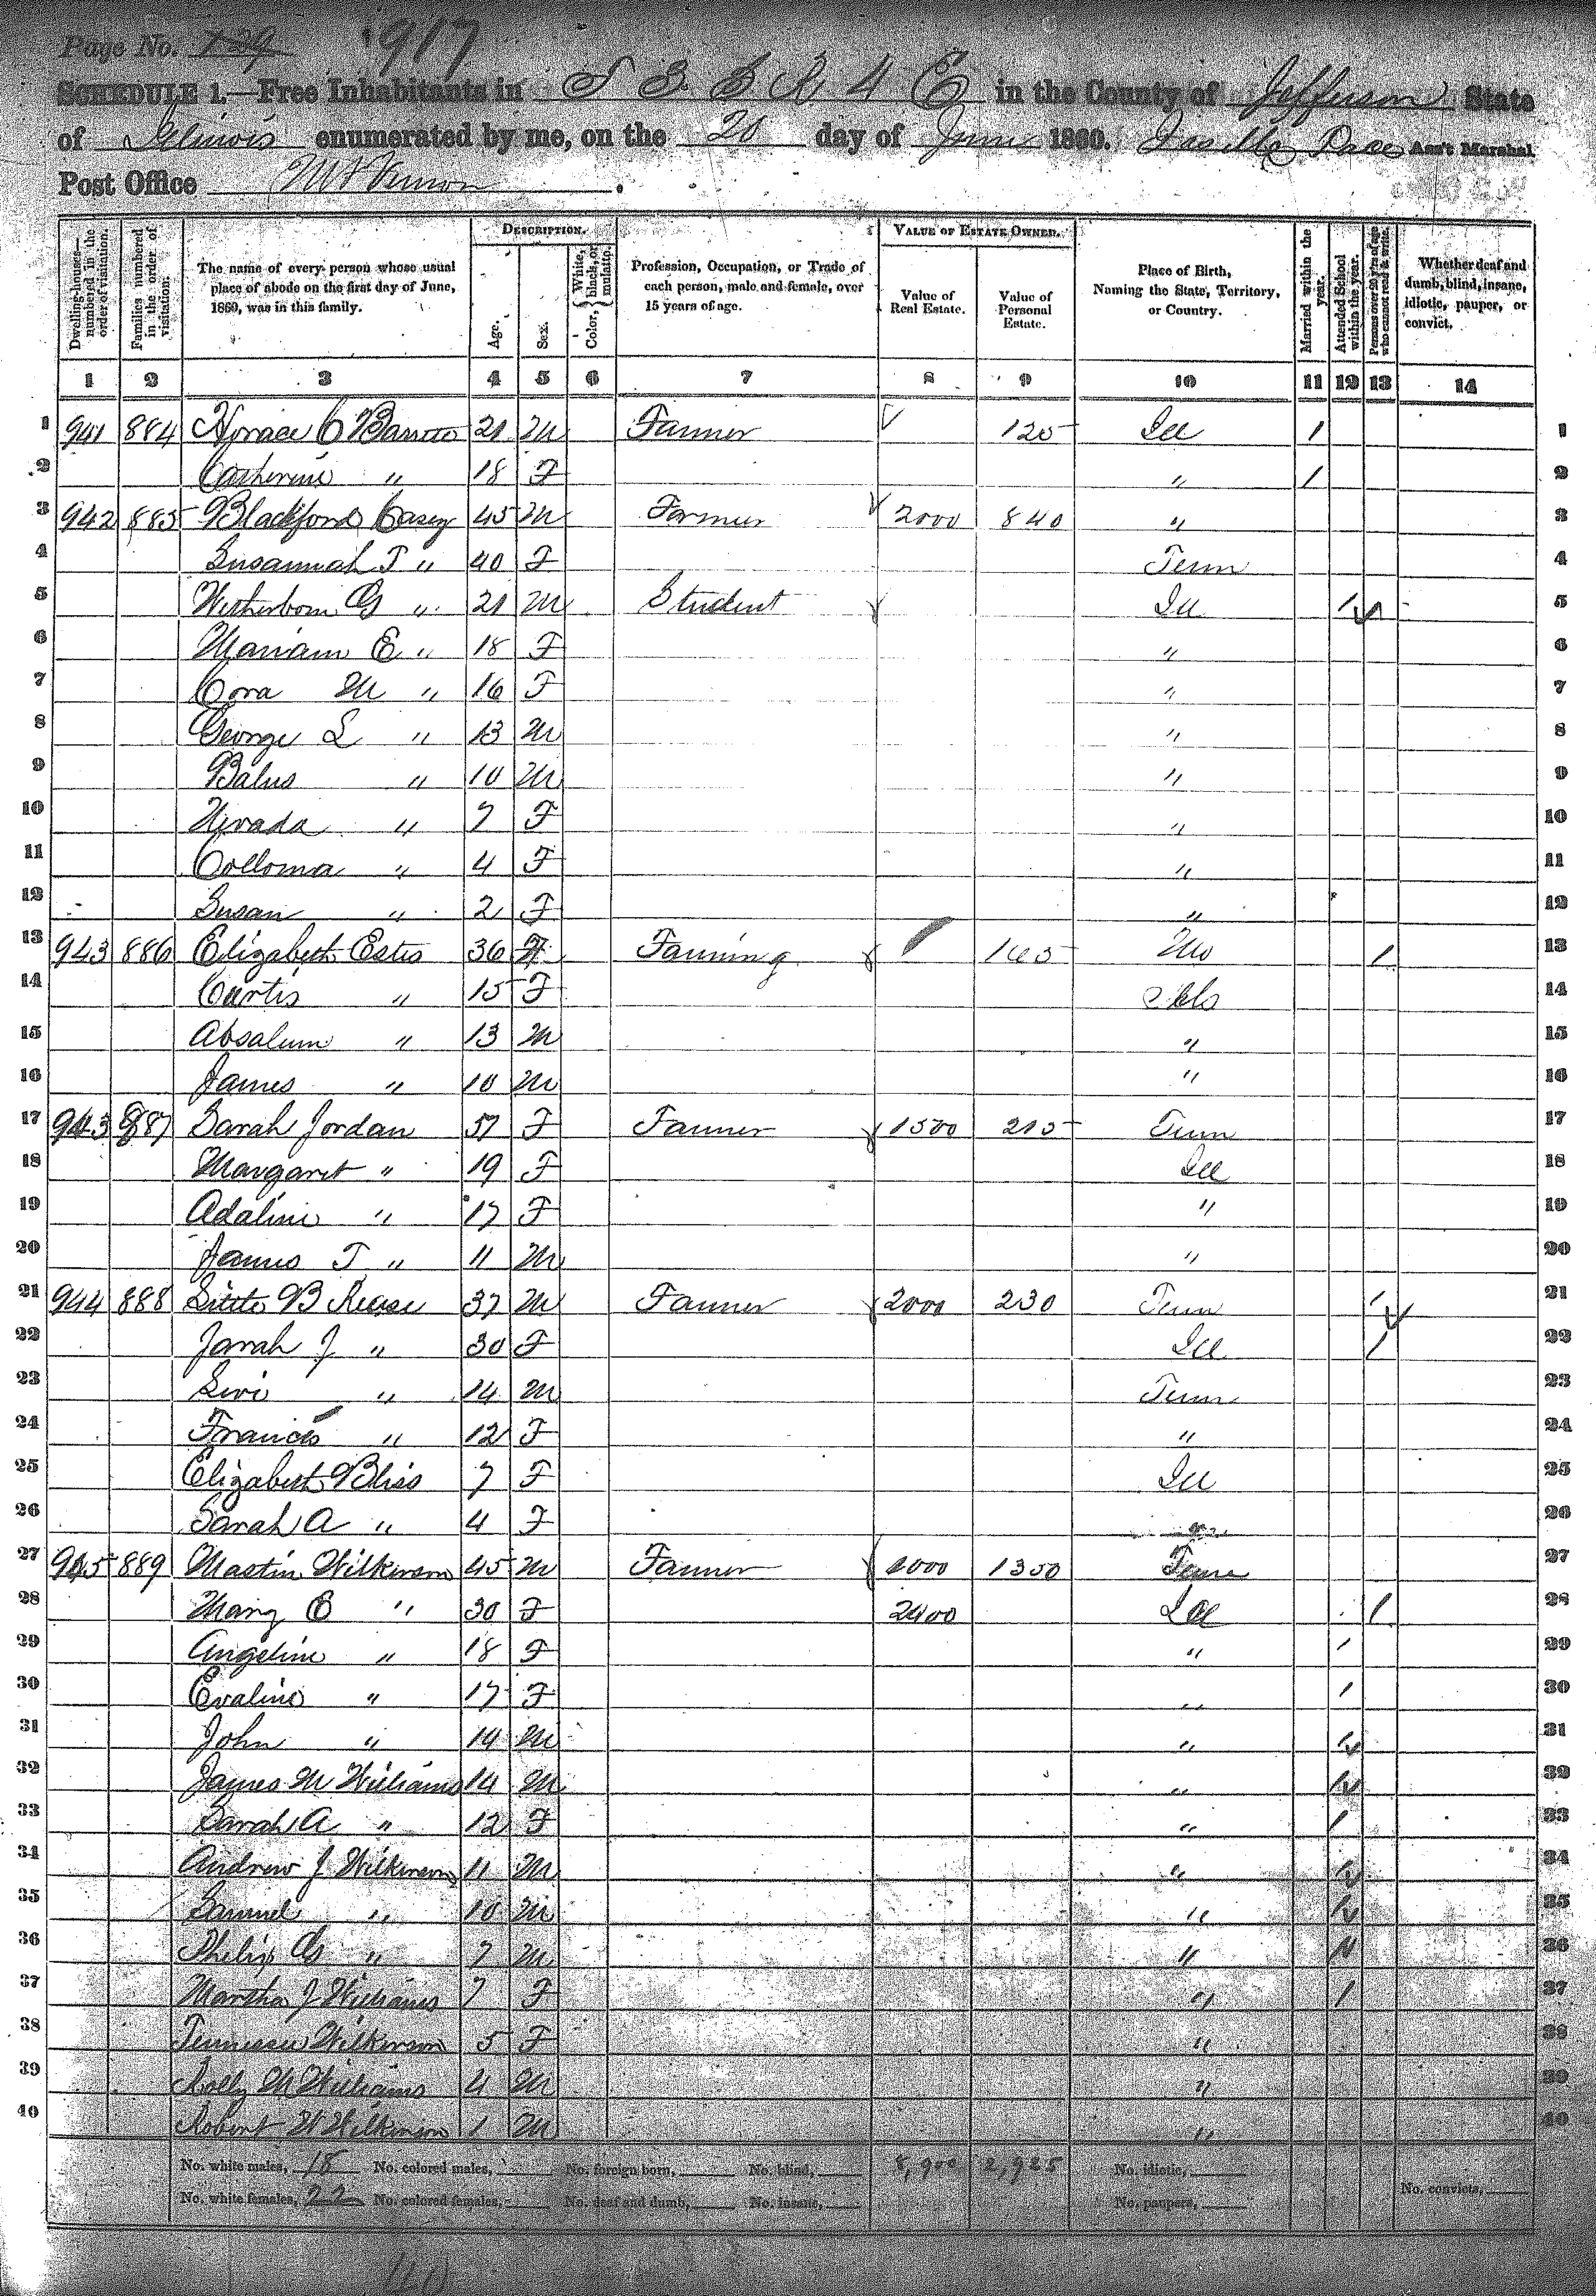 Page No. 729 917
SCHEDULE 1.—Free Inhabitants in T 3 S R 4 E in the County of Jefferson State
of Illinois enumerated by me, on the 20 day of June 1860. Pace Ass't Marshal
Post Office Mt Vernon
Dwelling-houses—numbered in the order of visitation.
Families numbered in the order of visitation.
The name of every person whose usual place of abode on the first day of June, 1860, was in this family.
DESCRIPTION.
Age.
Sex.
Color, { White, black, or mulatto.
Profession, Occupation, or Trade of each person, male and female, over 15 years of age.
VALUE OF ESTATE OWNED.
Value of Real Estate.
Value of Personal Estate.
Place of Birth, Naming the State, Territory, or Country.
Married within the year.
Attended School within the year.
Persons over 20 y'rs of age who cannot read & write.
Whether deaf and dumb, blind, insane, idiotic, pauper, or convict.
1 2 3 4 5 6 7 8 9 10 11 12 13 14
1 941 884 Horace C 21 M Farmer 125 Ill 1 1
2 Catherine " 18 F " 1 2
3 942 885 Blackford Casey 45 M Farmer 2000 840 " 3
4 Susannah T " 40 F Tenn 4
5 G " 21 M Student Ill 1 5
6 Mariam E " 18 F " 6
7 Cora M " 16 F " 7
8 George L " 13 M " 8
9 Balus " 10 M " 9
10 Nevada " 7 F " 10
11 Colloma " 4 F " 11
12 Susan " 2 F " 12
13 943 886 Elizabeth Estis 36 F Farming 165 Mo 1 13
14 Curtis " 15 F 14
15 Absalum " 13 M " 15
16 James " 10 M " 16
17 943 887 Sarah Jordan 57 F Farmer 1500 215 Tenn 17
18 Margaret " 19 F Ill 18
19 Adaline " 17 F " 19
20 James T " 11 M " 20
21 944 888 B 37 M Farmer 2000 230 Tenn 1 21
22 Sarah J " 30 F Ill 1 22
23 Levi " 14 M Tenn 23
24 Francis " 12 F " 24
25 Elizabeth Bliss 7 F Ill 25
26 Sarah A " 4 F " 26
27 945 889 Mastin Wilkerson 45 M Farmer 1000 1350 Tenn 27
28 Mary E " 30 F 2400 Ill 1 28
29 Angeline " 18 F " 1 29
30 Evaline " 17 F " 1 30
31 John " 14 M " 1 31
32 James M Williams 14 M " 1 32
33 Sarah A " 12 F " 1 33
34 Andrew J Wilkerson 11 M " 1 34
35 Samuel " 10 M " 1 35
36 Philip G " 7 M " 1 36
37 Martha J Williams 7 F " 1 37
38 Tennessee Wilkerson 5 F " 38
39 Rolly M Williams 4 M " 39
40 Robert W Wilkerson 1 M " 40
No. white males, 18 No. colored males, No. foreign born, No. blind, 8,900 2,925 No. idiotic,
No. white females, 22 No. colored females, No. deaf and dumb, No. insane, No. paupers, No. convicts,